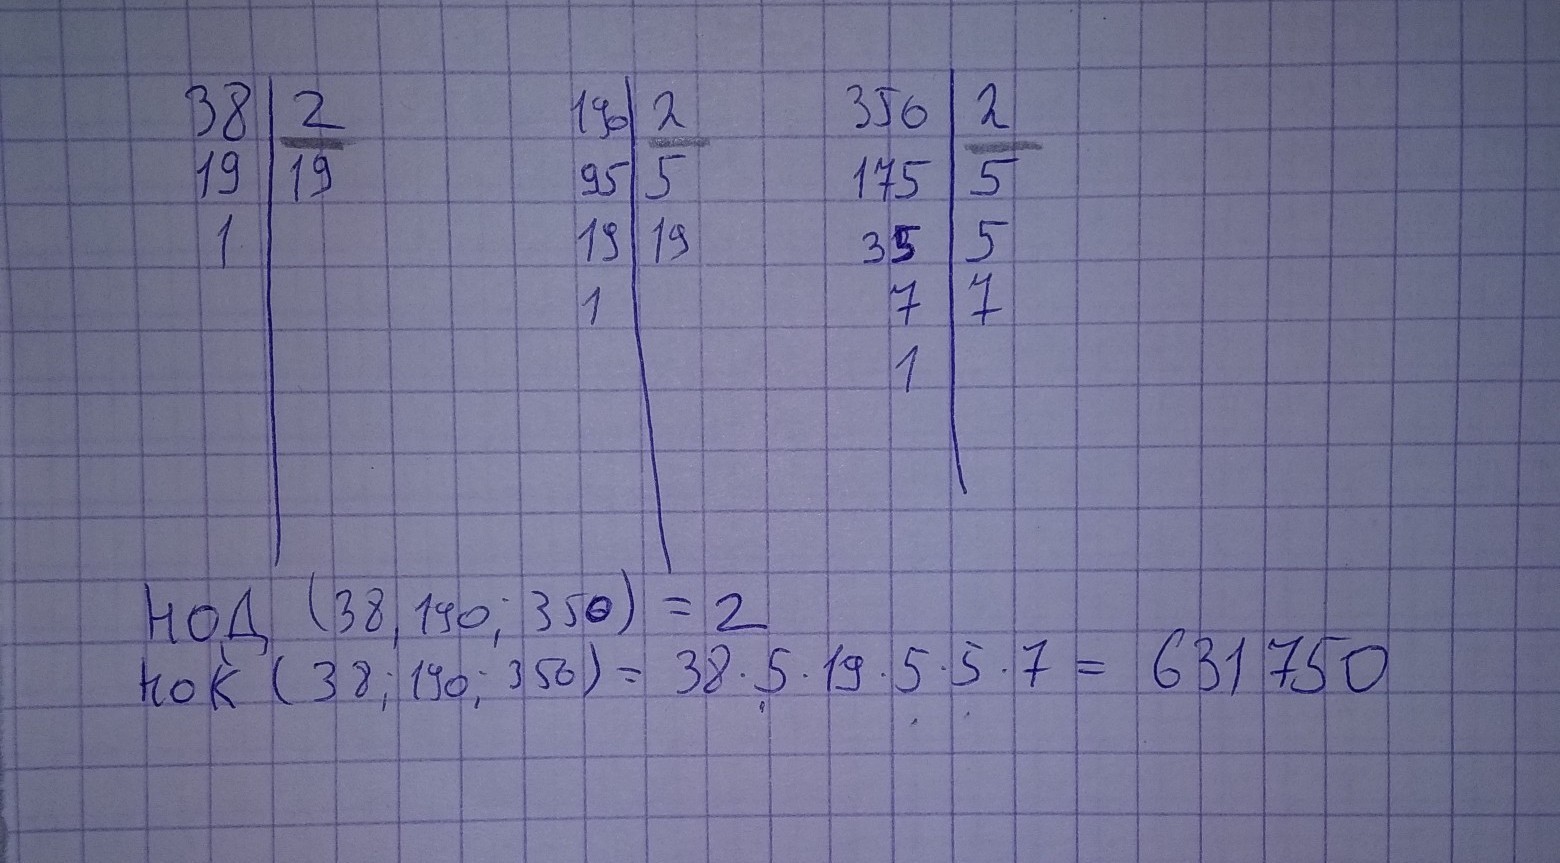 38 | 2 190 | 2 350 | 2
19 | 19 95 | 5 175 | 5
1 | 19 | 19 35 | 5
1 | 7 | 7
1 |
НОД (38, 190; 350) = 2
НОК (38; 190; 350) = 38 · 5 · 19 · 5 · 5 · 7 = 631 750